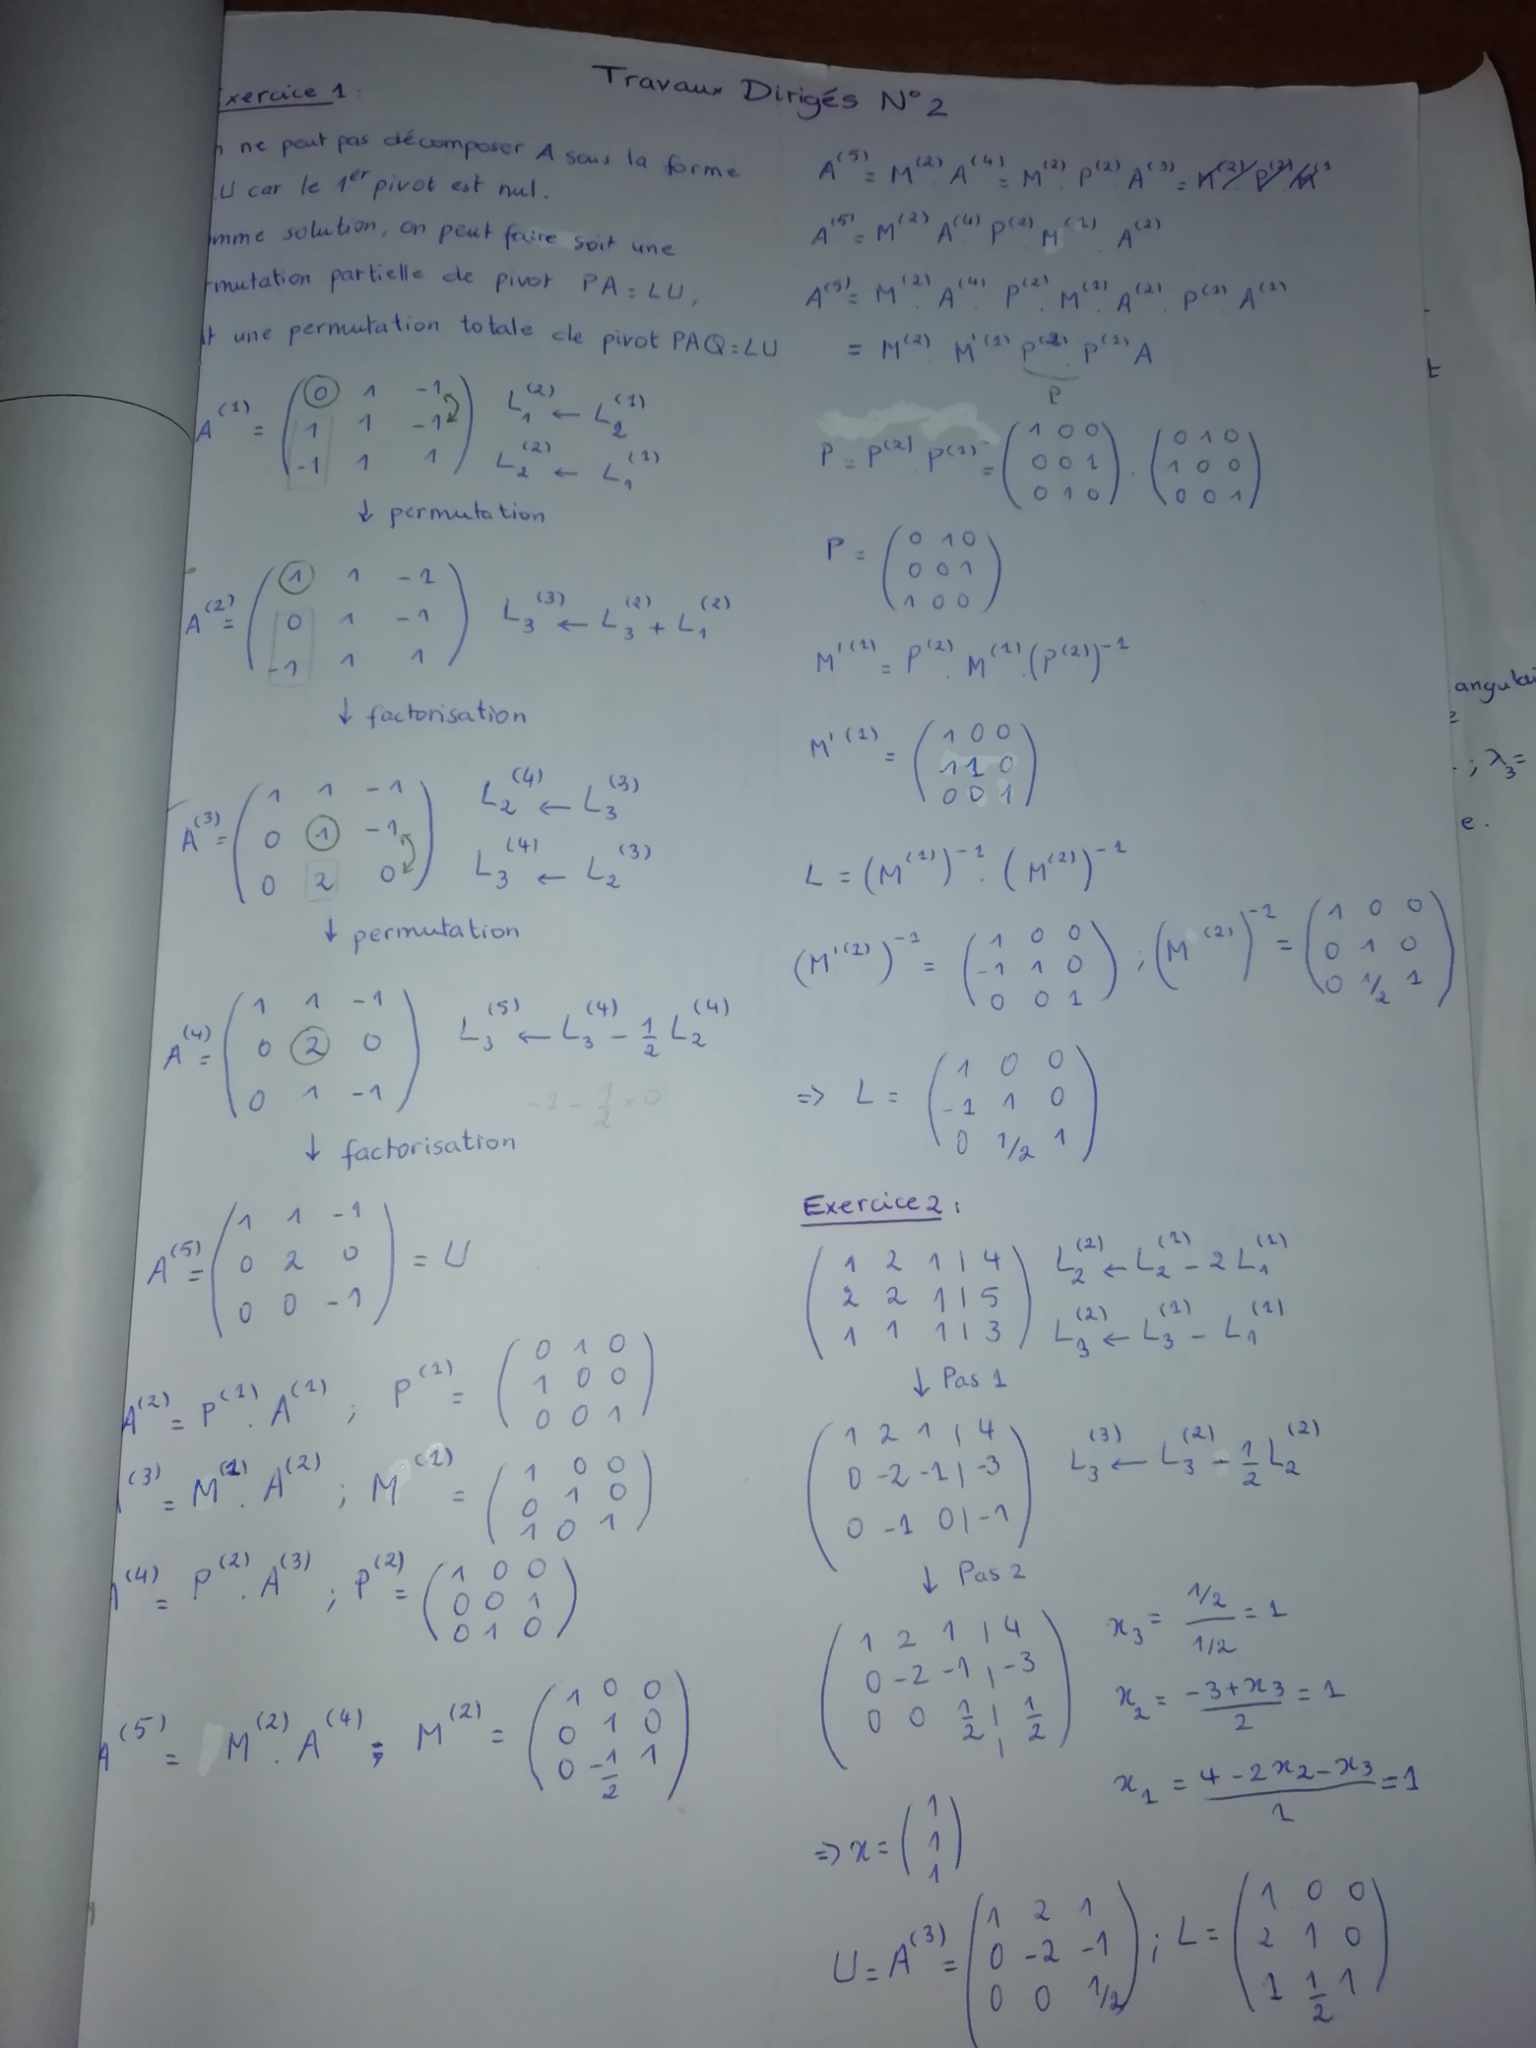 Travaux Dirigés N°2
xercice 1:
ne peut pas décomposer A sous la forme
U car le 1er pivot est nul.
mme solution, on peut faire soit une
mutation partielle de pivot PA = LU,
t une permutation totale de pivot PAQ = LU
A^(1) = ( 0 1 -1 L_1^(2) ← L_2^(1)
1 1 -1
-1 1 1 ) L_2^(2) ← L_1^(1)
↓ permutation
A^(2) = ( 1 1 -1
0 1 -1 L_3^(3) ← L_3^(2) + L_1^(2)
-1 1 1 )
↓ factorisation
A^(3) = ( 1 1 -1 L_2^(4) ← L_3^(3)
0 1 -1
0 2 0 ) L_3^(4) ← L_2^(3)
↓ permutation
A^(4) = ( 1 1 -1
0 2 0 L_3^(5) ← L_3^(4) - 1/2 L_2^(4)
0 1 -1 )
↓ factorisation
A^(5) = ( 1 1 -1
0 2 0 = U
0 0 -1 )
A^(2) = P^(1) . A^(1) ; P^(1) = ( 0 1 0
1 0 0
0 0 1 )
^(3) = M^(1) . A^(2) ; M^(1) = ( 1 0 0
0 1 0
1 0 1 )
^(4) = P^(2) . A^(3) ; P^(2) = ( 1 0 0
0 0 1
0 1 0 )
A^(5) = M^(2) . A^(4) ; M^(2) = ( 1 0 0
0 1 0
0 -1/2 1 )
A^(5) = M^(2) . A^(4) = M^(2) . P^(2) A^(3) =
A^(5) = M^(2) A^(4) P^(2) M^(1) . A^(2)
A^(5) = M^(2) . A^(4) . P^(2) . M^(1) A^(2) . P^(1) A^(1)
= M^(2) . M'^(1) P^(2) . P^(1) A
P
P = P^(2) . P^(1) = ( 1 0 0
0 0 1
0 1 0 ) . ( 0 1 0
1 0 0
0 0 1 )
P = ( 0 1 0
0 0 1
1 0 0 )
M'^(1) = P^(2) . M^(1) . (P^(2))^-1
M'^(1) = ( 1 0 0
1 1 0
0 0 1 )
L = (M^(1))^-1 . (M^(2))^-1
(M'^(1))^-1 = ( 1 0 0
-1 1 0
0 0 1 ) ; (M^(2))^-1 = ( 1 0 0
0 1 0
0 1/2 1 )
=> L = ( 1 0 0
-1 1 0
0 1/2 1 )
Exercice 2 :
( 1 2 1 | 4 L_2^(2) ← L_2^(1) - 2 L_1^(1)
2 2 1 | 5
1 1 1 | 3 ) L_3^(2) ← L_3^(1) - L_1^(1)
↓ Pas 1
( 1 2 1 | 4
0 -2 -1 | -3 L_3^(3) ← L_3^(2) - 1/2 L_2^(2)
0 -1 0 | -1 )
↓ Pas 2
( 1 2 1 | 4
0 -2 -1 | -3
0 0 1/2 | 1/2 )
x_3 = (1/2)/(1/2) = 1
x_2 = (-3 + x_3)/2 = 1
x_1 = (4 - 2x_2 - x_3)/1 = 1
=> x = ( 1
1
1 )
U = A^(3) = ( 1 2 1
0 -2 -1
0 0 1/2 ) ; L = ( 1 0 0
2 1 0
1 1/2 1 )
angulai
; λ_3 =
e.